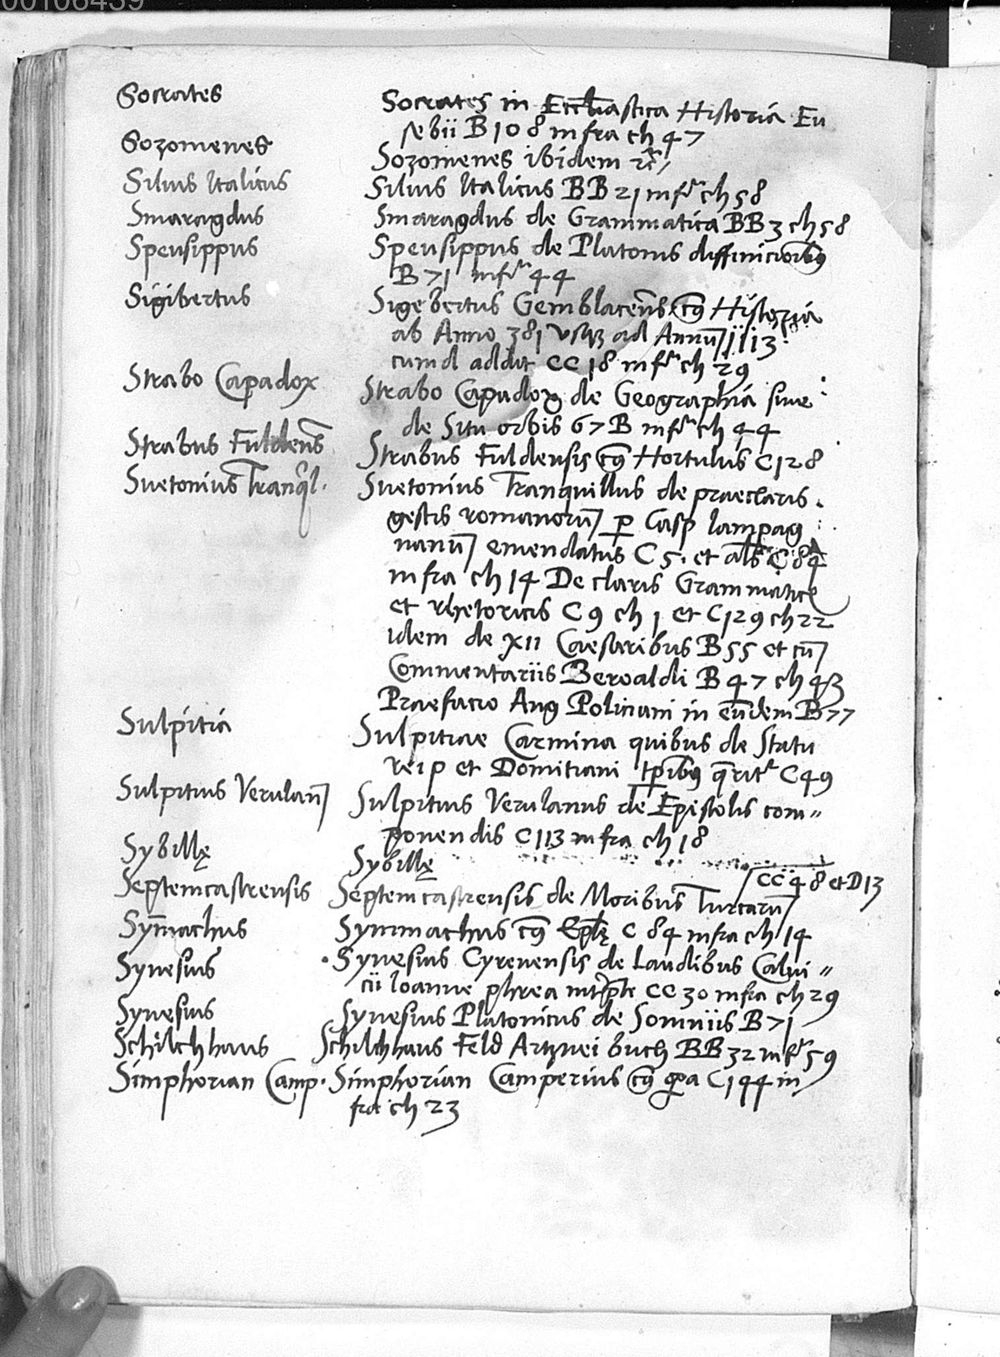 00106439
Socrates Socrates in Eccliastica Historia Eu
sebii B108 infra ch 47
Sozomenes Sozomenes ibidem
Silius Italicus Silius Italicus BB 21 infr ch 58
Smaragdus Smaragdus de Grammatica BB 3 ch 58
Speusippus Speusippus de Platonis diffinicionibus
B 71 infr 44
Sigibertus Sigebertus Gemblacens cum Historia
ab Anno 381 usque ad Annum 1113
cum addit CC 18 infr ch 29
Strabo Capadox Strabo Capadox de Geographia sive
de Situ orbis 67 B infr ch 44
Strabus Fuldens Strabus Fuldensis cum Hortulus C128
Suetonius Tranql. Suetonius Tranquillus de praeclaris
gestis romanorum per Casp lampag
nanum emendatus C 5. et alb C 84
infra ch 14 De claris Grammatice
et rhetoricis C 9 ch 1 et C129 ch 22
idem de XII Caesaribus B55 et cum
Commentariis Beroaldi B 47 ch 43
Praefacio Ang Policiani in eundem B77
Sulpitia Sulpitiae Carmina quibus de Statu
reip et Domitiani tpribus queritr C49
Sulpitius Verulan Sulpitius Verulanus de Epistolis com
ponendis C113 infra ch 18
Sybillę Sybillę CC 48 et D13
Septemcastrensis Septemcastrensis de Moribus Turcarum
Symachus Symmachus cum Eplę C 84 infra ch 14
Synesius Synesius Cyrenensis de Laudibus Calvi
cii Ioanne phrea intprete CC 30 infra ch 29
Synesius Synesius Platonicus de Somniis B 71
Schilchhans Schilchhans Feld Artznei buch BB 32 infr 59
Simphorian Camp. Simphorian Camperius cum C144 in
fra ch 23